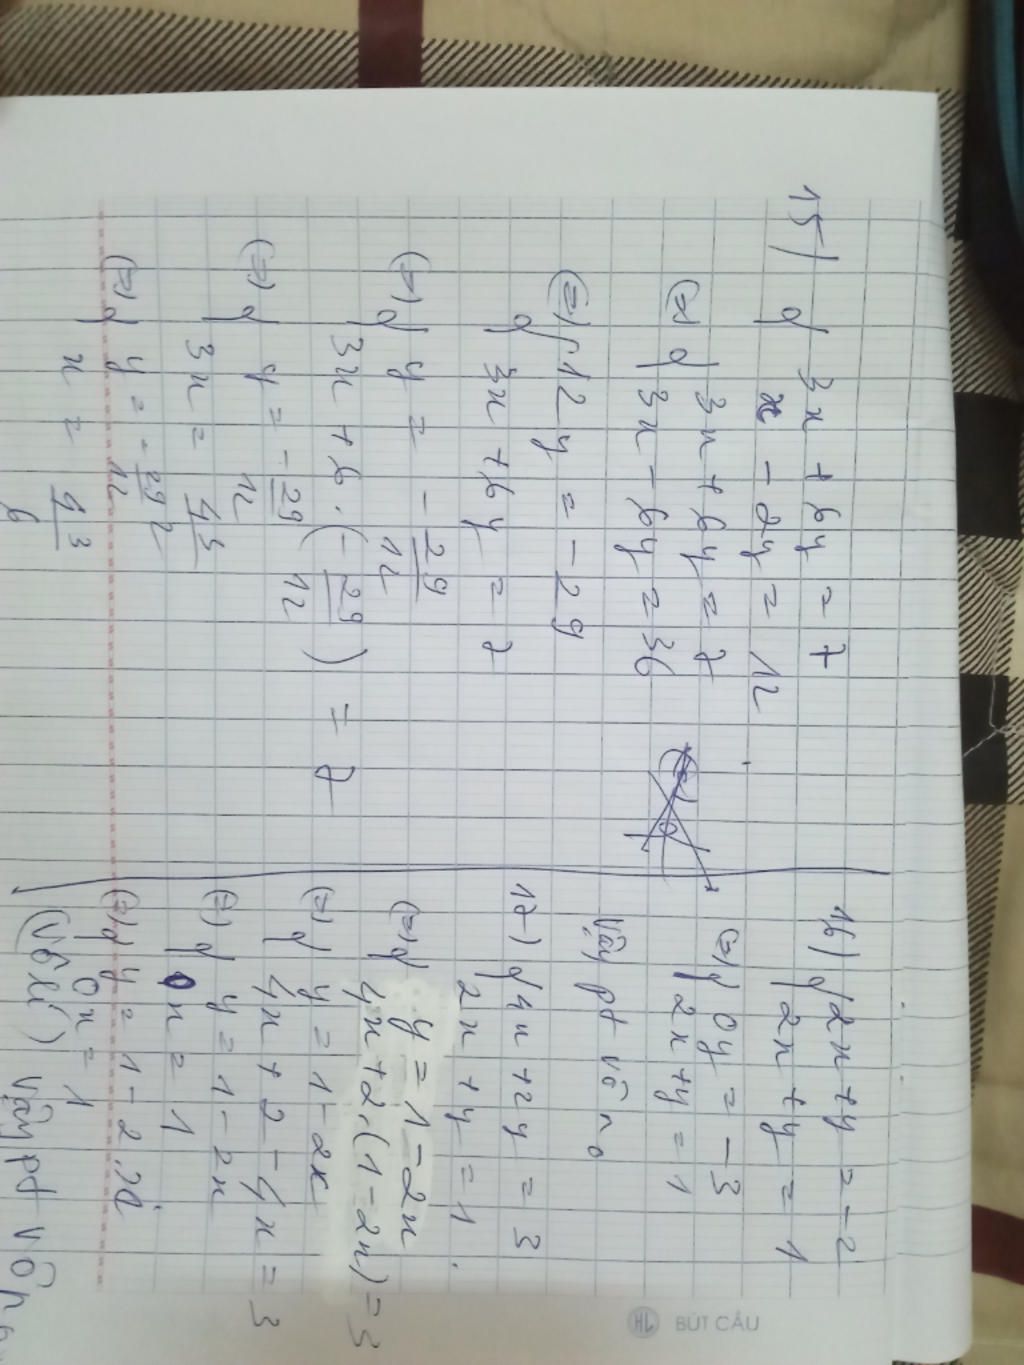 15) { 3x + 6y = 7
x - 2y = 12
(=) { 3x + 6y = 7
3x - 6y = 36
(=) { 12y = -29
3x + 6y = 7
(=) { y = -29/12
3x + 6.(-29/12) = 7
(=) { y = -29/12
3x = 43/2
(=) { y = -29/12
x = 43/6
16) { 2x + y = -2
2x + y = 1
(=) { 0y = -3
2x + y = 1
Vậy pt vô no
17) { 4x + 2y = 3
2x + y = 1
(=) { y = 1 - 2x
4x + 2.(1 - 2x) = 3
(=) { y = 1 - 2x
4x + 2 - 4x = 3
(=) { y = 1 - 2x
0x = 1
(=) { y = 1 - 2x
0x = 1
(Vô lí) Vậy pt vô no
HL BÚT CẦU